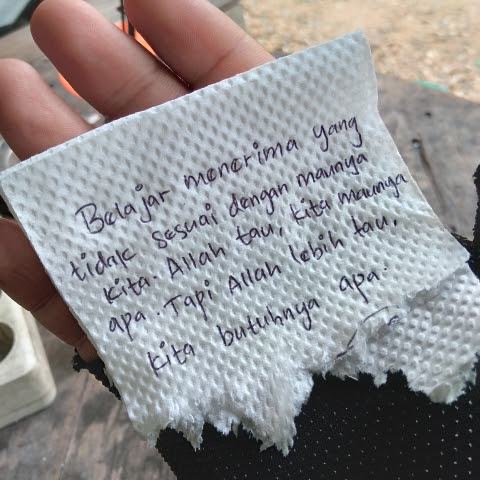 Belajar menerima yang
tidak sesuai dengan maunya
kita. Allah tau, kita maunya
apa. Tapi Allah lebih tau,
kita butuhnya apa.